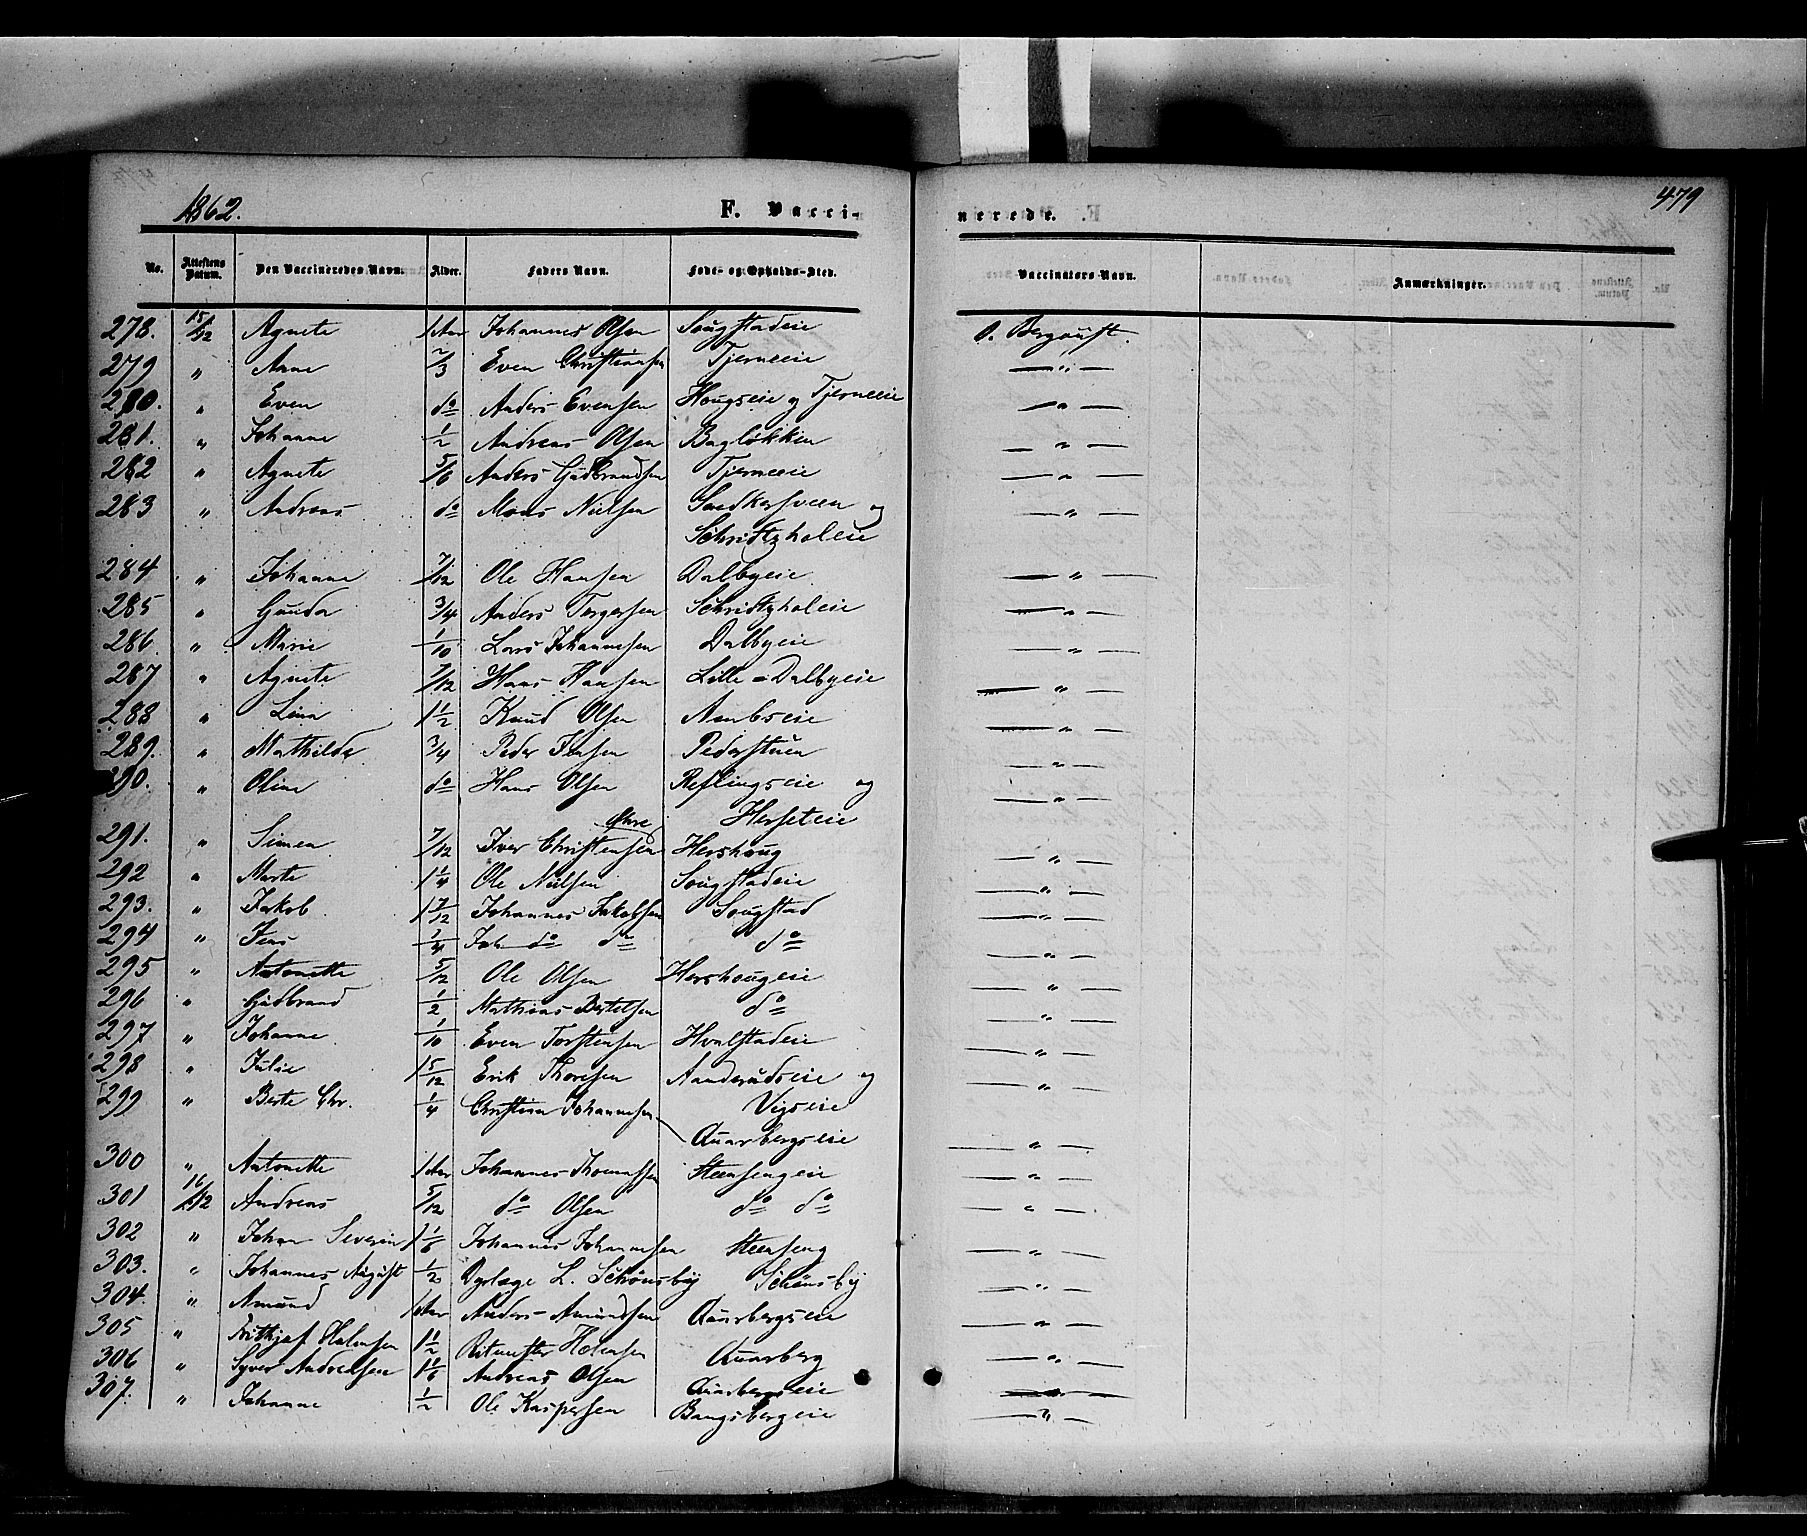 1862. F. Vacci- nerede. 479
No. Attestens Datum. Den Vaccineredes Navn. Alder. Faders Navn. Føde- og Opholds-Sted. Vaccinators Navn. Anmærkninger.
278. 15/12 Agnete 1 Aar Johannes Olsen Sougstadeie O. Bergqvist.
279 " Anne 2/3 Even Christiansen Tjerneeie — " —
280. " Even do Anders Evensen Hougseie og Tjerneeie — " —
281. " Johanne 1/2 Andreas Olsen Bagløkken — " —
282 " Agnete 5/6 Anders Gudbrandsen Tjerneeie — " —
283 " Andreas do Mons Nielsen Snedkersveen og — " —
Schridtzholeie
284 " Johanne 7/12 Ole Hansen Dalbyeie — " —
285 " Gunda 3/4 Anders Torgersen Schridtzholeie — " —
286 " Marie 1/10 Lars Johannesen Dalbyeie — " —
287 " Agnete 7/12 Hans Hansen Lille-Dalbyeie — " —
288 " Lina 1 1/2 Knud Olsen — " —
289. " Mathilde 3/4 Peder Jensen Pederstuen — " —
290. " Oline do Hans Olsen Reslingseie og — " —
Herseteie
291. " Simen 7/12 Iver Christensen Øhre Hershoug — " —
292 " Marte 1 1/4 Ole Nielsen Sougstadeie — " —
293. " Jakob 1 7/12 Johannes Jakobsen Sougstad — " —
294 " Jens 1/4 Joh do do do — " —
295 " Antonette 5/12 Ole Olsen Hershougeie — " —
296 " Gudbrand 1/2 Mathias Bertelsen do — " —
297 " Johanne 1/10 Even Torstensen Hvalstadeie — " —
298 " Julie 1 5/12 Erik Thoresen Aanderudseie og — " —
299 " Berte Chr. 1/4 Christian Johannesen Vigseie
Auarbergseie — " —
300 " Antonette 1 Aar Johannes Thomassen Steensengeie — " —
301 16/12 Andreas 5/12 do Olsen do do — " —
302 " Johan Severin 1 1/6 Johannes Johannesen Steenseng — " —
303. " Johannes August 1/2 Dyrlæge L. Schönsby Schönsby — " —
304. " Amund 1 Aar Anders Amundsen Auarbergseie — " —
305 " Frithjof Holmsen 1 1/2 Ritmester Holmsen Auarberg — " —
306 " Syver Andreasen 1 1/6 Andreas Olsen Auarbergseie — " —
307. " Johanne 1/2 Ole Kaspersen Bangsbergeie — " —